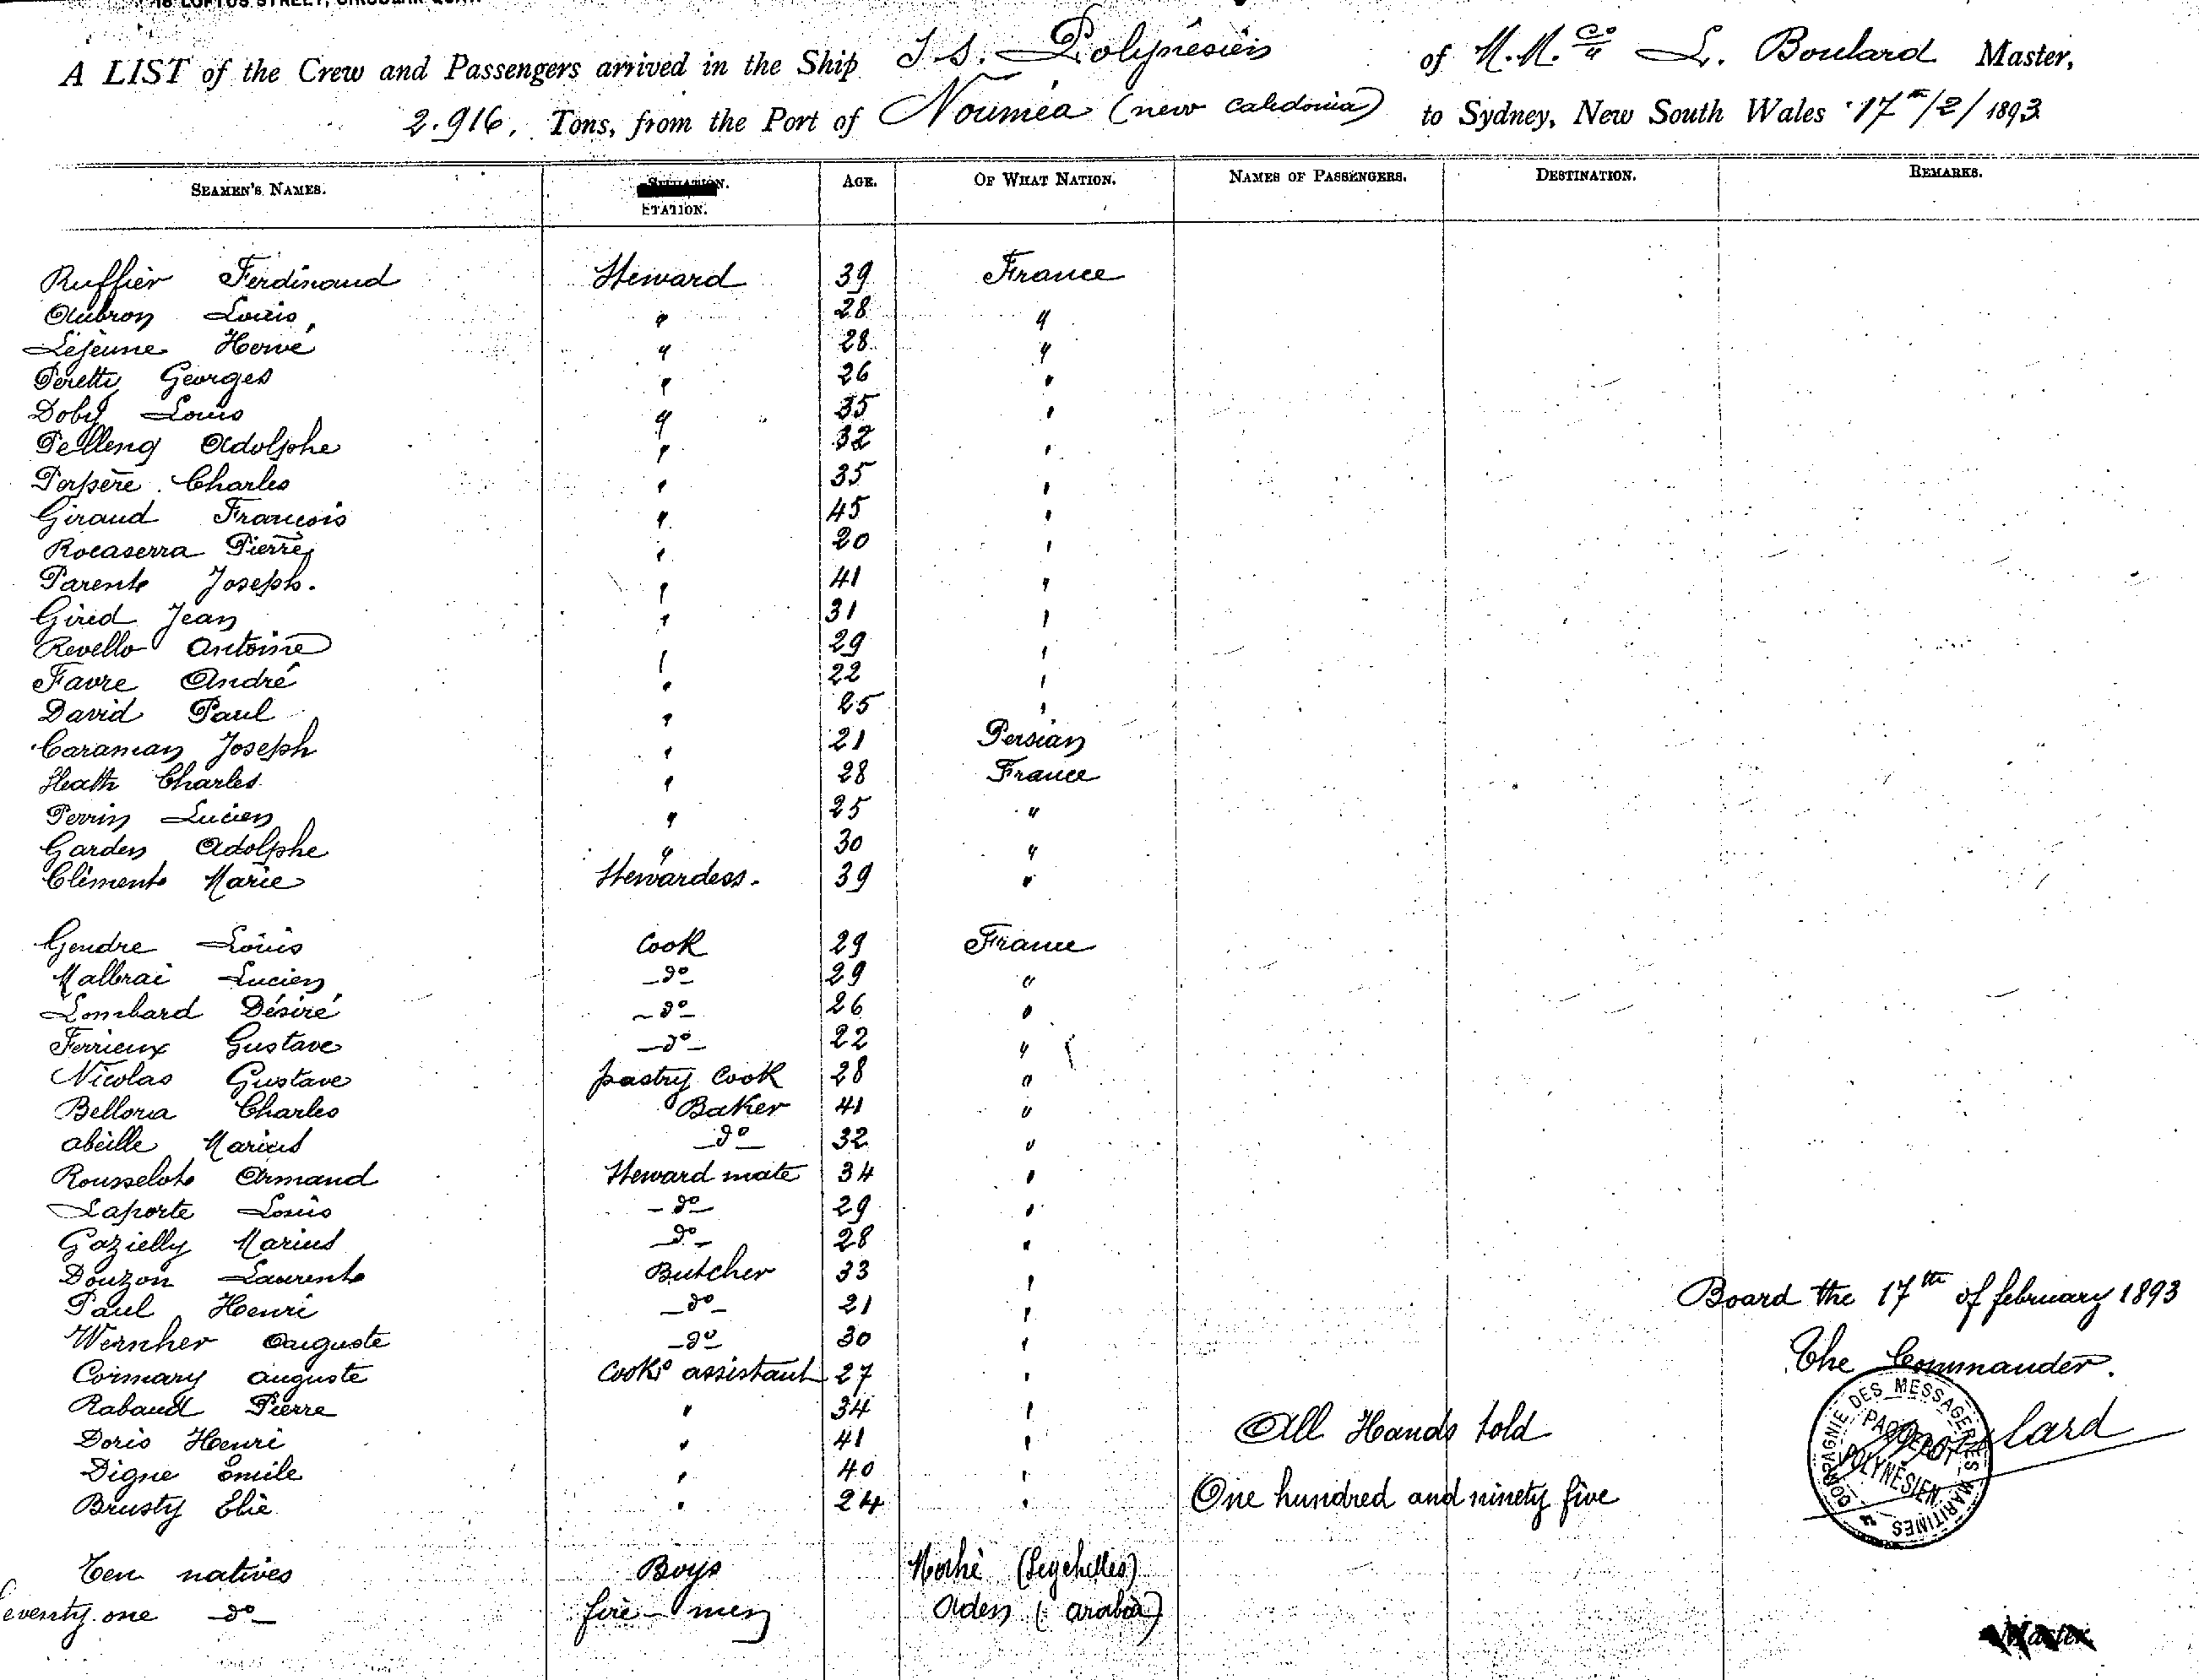 18 LOFTUS STREET, CIRCULAR QUAY
A LIST of the Crew and Passengers arrived in the Ship S. S. Polynésien of M. M. Co L. Boulard Master,
2.916. Tons, from the Port of Nouméa (new Caledonia) to Sydney, New South Wales 17th/2/1893
SEAMEN'S NAMES. STATION. AGE. OF WHAT NATION. NAMES OF PASSENGERS. DESTINATION. REMARKS.
Ruffier Ferdinand Steward 39 France
Aubron Louis " 28 "
Lejeune Hervé " 28 "
Peretti Georges " 26 "
Doby Louis " 35 "
Pelleng Adolphe " 32 "
Perpère Charles " 35 "
Giraud Francois " 45 "
Rocaserra Pierre " 20 "
Parent Joseph. " 41 "
Giried Jean " 31 "
Revello Antoine " 29 "
Favre André " 22 "
David Paul " 25 "
Caraman Joseph " 21 Persian
Heath Charles " 28 France
Perrin Lucien " 25 "
Garden Adolphe " 30 "
Clément Marie Stewardess. 39 "
Gendre Louis Cook 29 France
Malbrai Lucien do 29 "
Lombard Désiré do 26 "
Ferrieux Gustave do 22 "
Nicolas Gustave pastry Cook 28 "
Bellora Charles Baker 41 "
abeille Marius do 32 "
Rousselot Armand Steward mate 34 "
Laporte Louis do 29 "
Gazielly Marius do 28 "
Douzon Laurent Butcher 33 "
Board the 17th of february 1893
Paul Henri do 21 "
Wernher Auguste do 30 "
The Commander.
Cormary auguste Cook's assistant 27 "
Rabaud Pierre " 34 "
All Hands told
Doris Henri " 41 "
COMPAGNIE DES MESSAGERIES MARITIMES
PAQUEBOT
POLYNÉSIEN
Digne Emile " 40 "
Brusty Elie " 24 "
One hundred and ninety five
Ten natives Boys Mahé (Seychelles)
Seventy one do fire-men Aden (arabia)